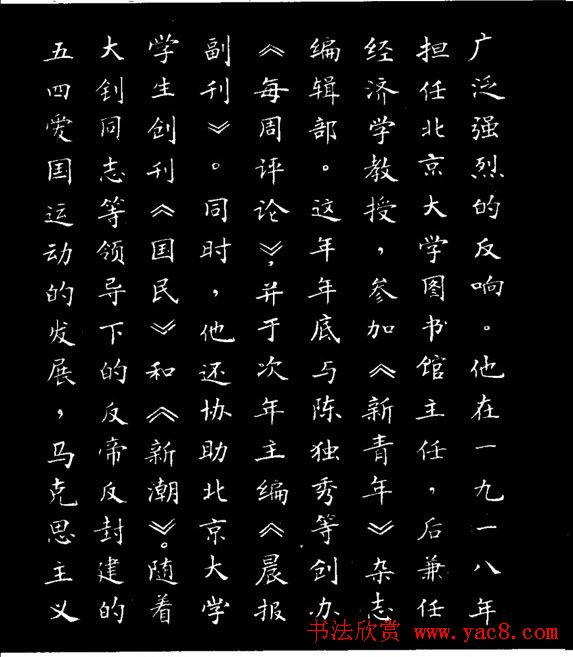 广泛强烈的反响。他在一九一八年
担任北京大学图书馆主任，后兼任
经济学教授，参加《新青年》杂志
编辑部。这年年底与陈独秀等创办
《每周评论》，并于次年主编《晨报
副刊》。同时，他还协助北京大学
学生创刊《国民》和《新潮》。随着
大钊同志等领导下的反帝反封建的
五四爱国运动的发展，马克思主义
书法欣赏 www.yac8.com